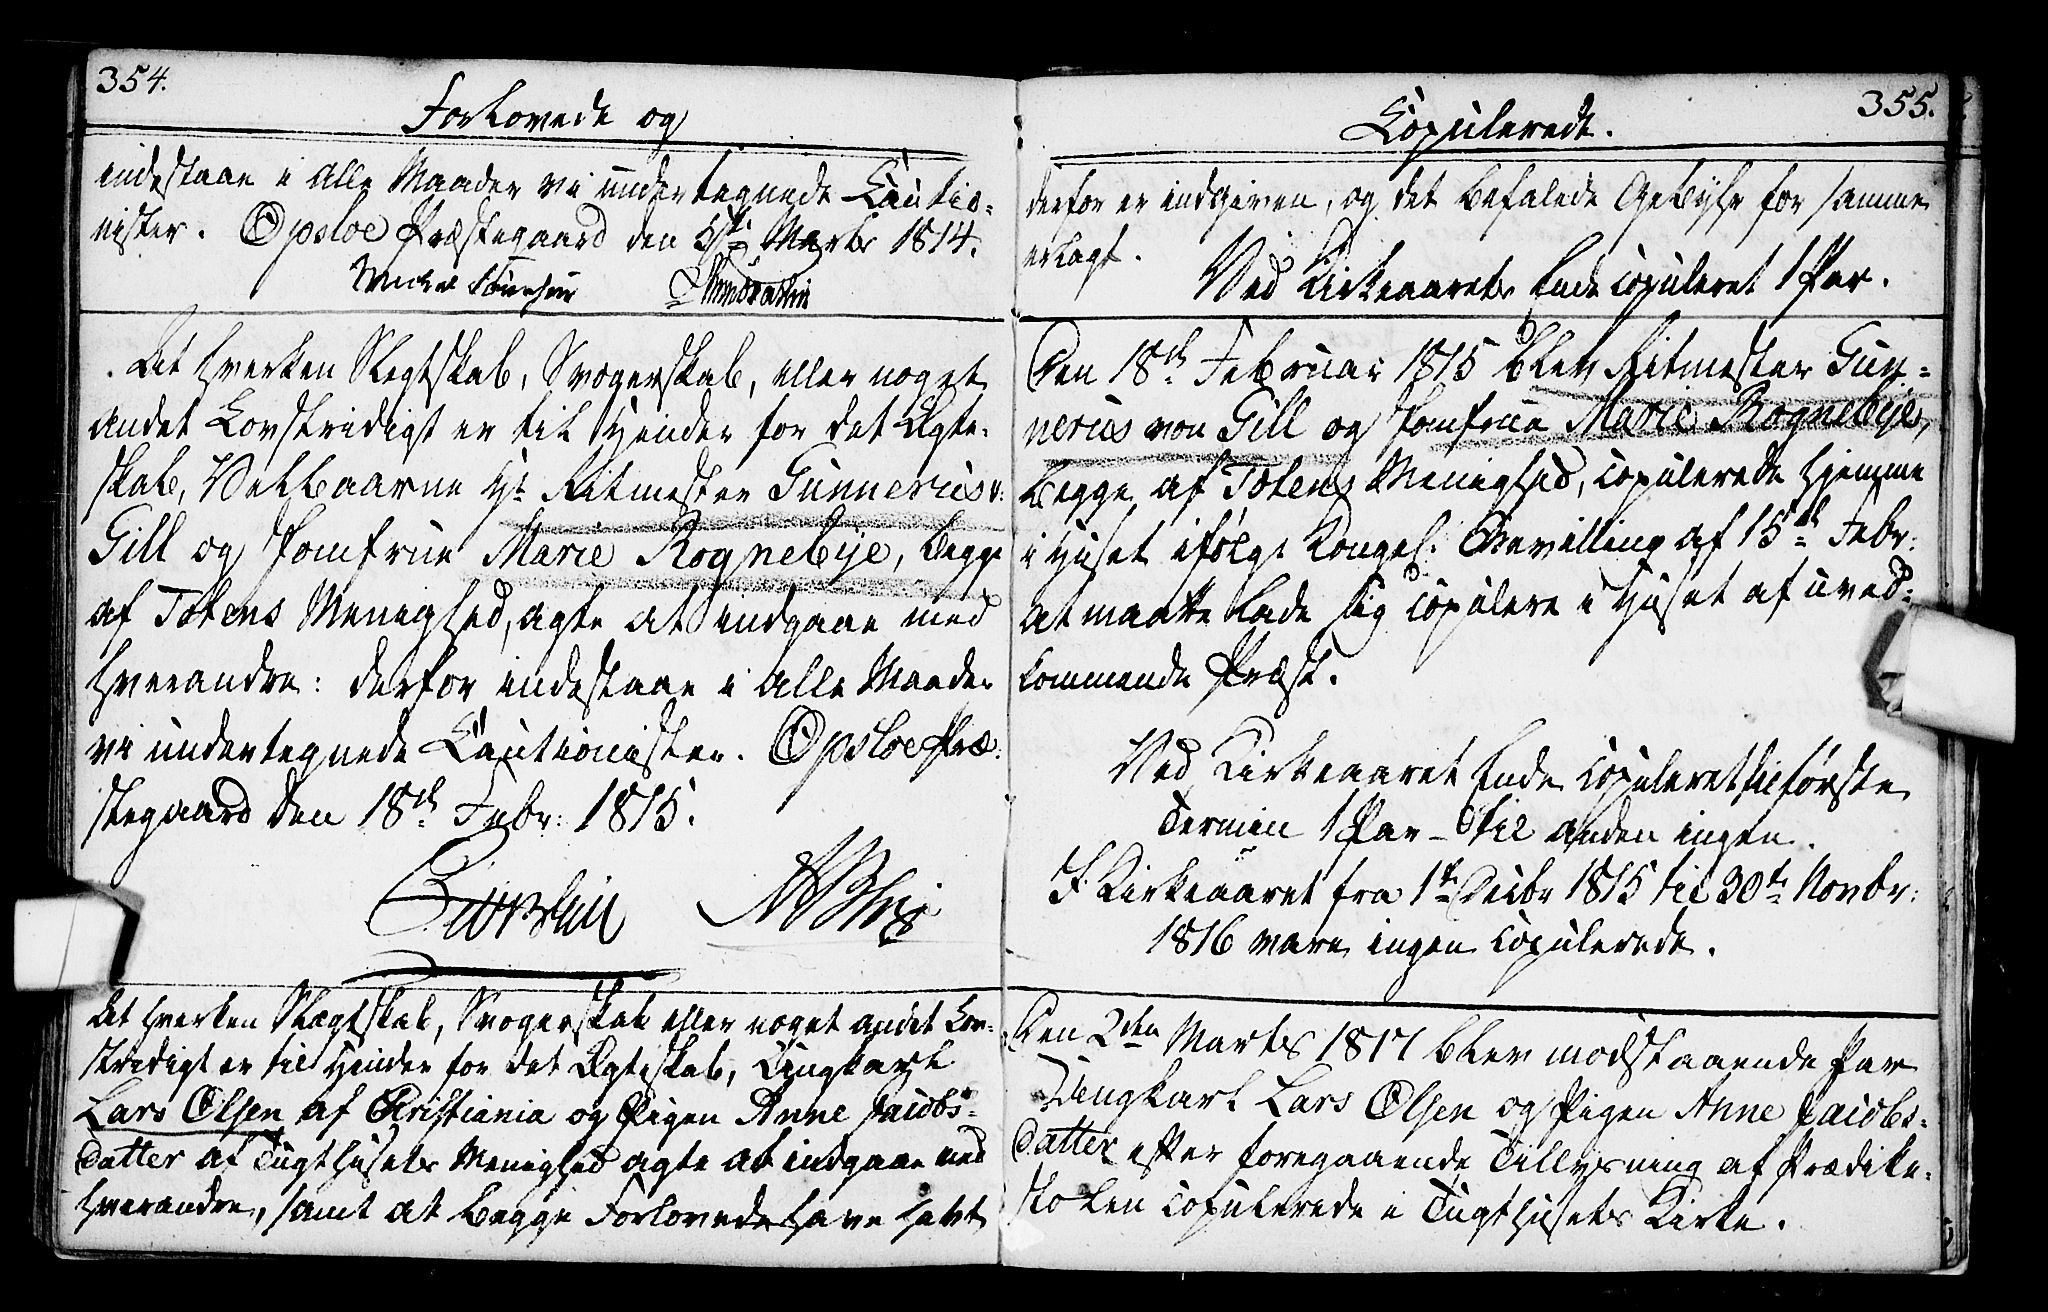 354.
Forlovede og
indestaae i alle Maader vi undertegnede Cautio-
nister. Opsloe Præstegaard den 5te Marts 1814.
At hverken Slegtskab, Svogerskab, eller noget
andet Lovstridigt er til Hinder for det Ægte-
skab, Velbaarne Hr Ritmester Gunnerius v:
Gill og Jomfrue Marie Rognebye, begge
af Totens Menighed, agte at indgaae med
hverandre: derfor indestaae i alle Maader
vi undertegnede Cautionister. Opsloe Præ-
stegaard den 18de Febr: 1815.
At hverken Slægtskab, Svogerskab eller noget andet Lov-
stridigt er til Hinder for det Ægteskab, Ungkarl
Lars Olsen af Christiania og Pigen Anne Jacobs-
datter af Tugthusets Menighed agte at indgaae med
hverandre, samt at begge Forlovede have havt
355.
Copulerede.
derfor er indgiven, og det befalede Gebyhr for samme
erlagt.
Ved Kirkeaarets Ende copuleret 1 Par.
Den 18de Februar 1815 blev Ritmester Gun-
nerius von Gill og Jomfrue Marie Rognebye,
begge af Totens Menighed, copulerede hjemme
i Huset ifølge Kongel: Bevilling af 15de Febr:
at maatte lade sig copulere i Huset af uved-
kommende Præst.
Ved Kirkeaaret Ende copuleret til første
Termin 1 Par – til anden ingen.
I Kirkeaaret fra 1te Decbr 1815 til 30te Novbr:
1816 vare ingen copulerede.
Den 2den Marts 1817 blev modstaaende Par
Ungkarl Lars Olsen og Pigen Anne Jacobs-
datter efter foregaaende Tillysning af Prædike-
stolen copulerede i Tugthusets Kirke.